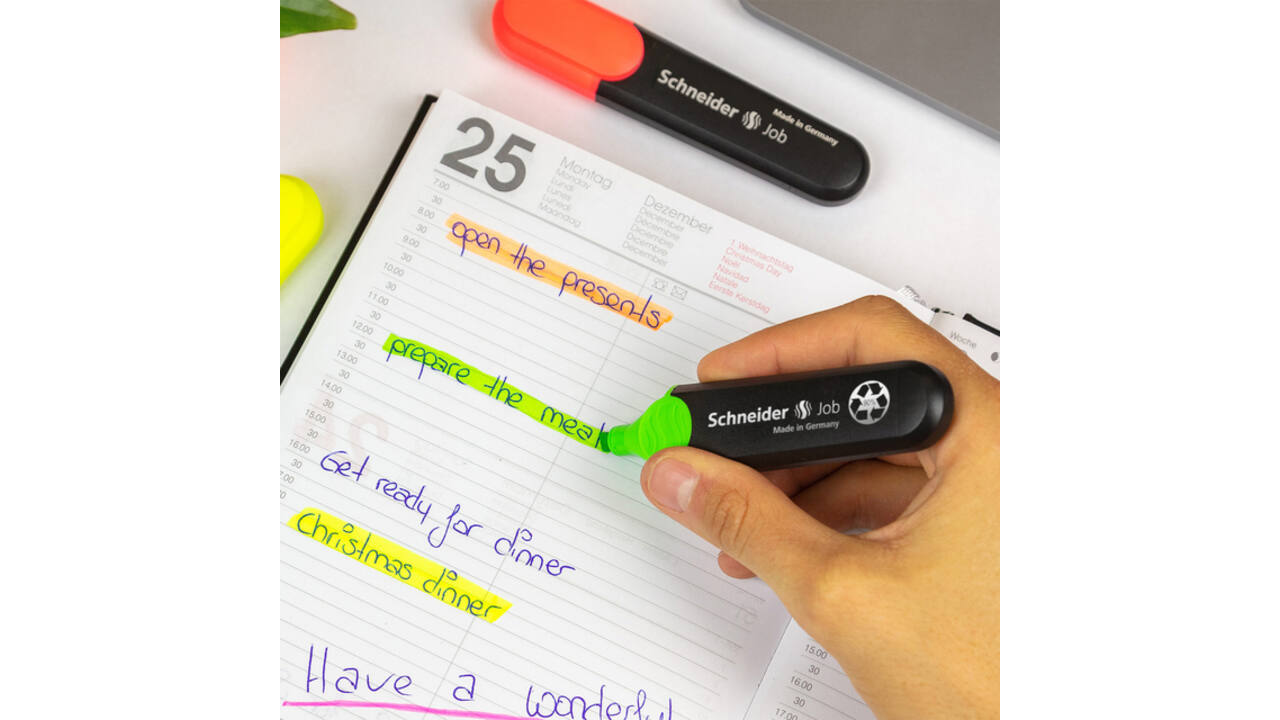 Schneider Job
Made in Germany
25
Montag
Monday
Lundi
Lunes
Lunedì
Maandag
Dezember
December
Décembre
Diciembre
Dicembre
December
1. Weihnachtstag
Christmas Day
Noël
Navidad
Natale
Eerste Kerstdag
7.00
30
8.00
30
open the presents
9.00
30
10.00
30
11.00
30
12.00
30
prepare the meal
13.00
30
14.00
30
15.00
30
16.00
30
Get ready for dinner
Christmas dinner
Have a wonderful
Schneider Job
Made in Germany
Woche
15.00
30
16.00
30
17.00